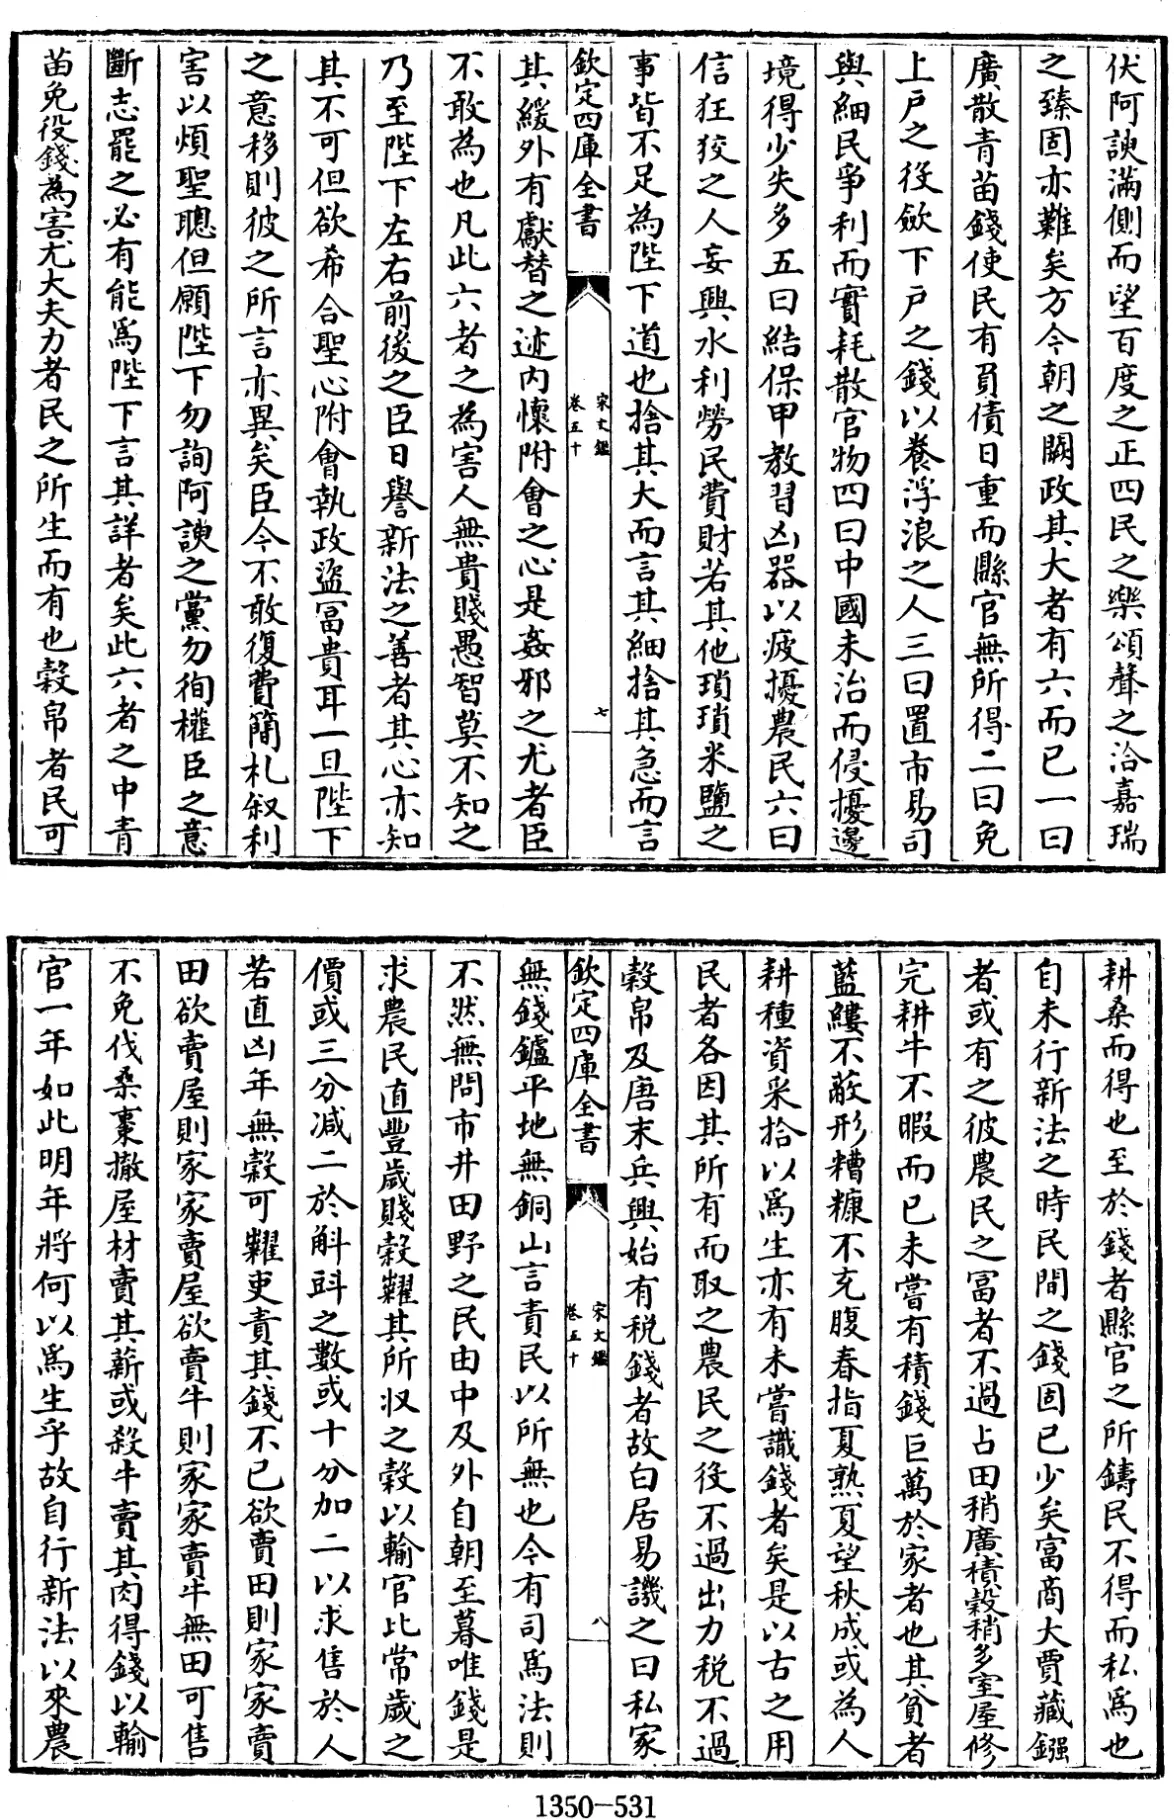 伏阿諛滿側而望百度之正四民之樂頌聲之洽嘉瑞
之臻固亦難矣方今朝之闕政其大者有六而已一曰
廣散青苗錢使民有負債日重而縣官無所得二曰免
上戸之役斂下戸之錢以養浮浪之人三曰置市易司
與細民爭利而實耗散官物四曰中國未治而侵擾邊
境得少失多五曰結保甲教習凶器以疲擾農民六曰
信狂狡之人妄興水利勞民費財若其他瑣瑣米鹽之
事皆不足為陛下道也捨其大而言其細捨其急而言
欽定四庫全書
宋文鑑
卷五十
七
其緩外有獻替之迹内懷附會之心是姦邪之尤者臣
不敢為也凡此六者之為害人無貴賤愚智莫不知之
乃至陛下左右前後之臣日譽新法之善者其心亦知
其不可但欲希合聖心附會執政盜富貴耳一旦陛下
之意移則彼之所言亦異矣臣今不敢復費簡札叙利
害以煩聖聰但願陛下勿詢阿諛之黨勿徇權臣之意
斷志罷之必有能爲陛下言其詳者矣此六者之中青
苗免役錢為害尤大夫力者民之所生而有也穀帛者民可
耕桑而得也至於錢者縣官之所鑄民不得而私爲也
自未行新法之時民間之錢固已少矣富商大賈藏鏹
者或有之彼農民之富者不過占田稍廣積穀稍多室屋修
完耕牛不暇而已未嘗有積錢巨萬於家者也其貧者
藍縷不蔽形糟糠不充腹春指夏熟夏望秋成或為人
耕種資采拾以爲生亦有未嘗識錢者矣是以古之用
民者各因其所有而取之農民之役不過出力税不過
穀帛及唐末兵興始有税錢者故白居易譏之曰私家
欽定四庫全書
宋文鑑
卷五十
八
無錢鑪平地無銅山言責民以所無也今有司爲法則
不然無問市井田野之民由中及外自朝至暮唯錢是
求農民直豐歲賤穀糶其所收之穀以輸官比常歲之
價或三分减二於斛㪷之數或十分加二以求售於人
若直凶年無穀可糶吏責其錢不已欲賣田則家家賣
田欲賣屋則家家賣屋欲賣牛則家家賣牛無田可售
不免伐桑棗撤屋材賣其薪或殺牛賣其肉得錢以輸
官一年如此明年將何以爲生乎故自行新法以來農
1350-531